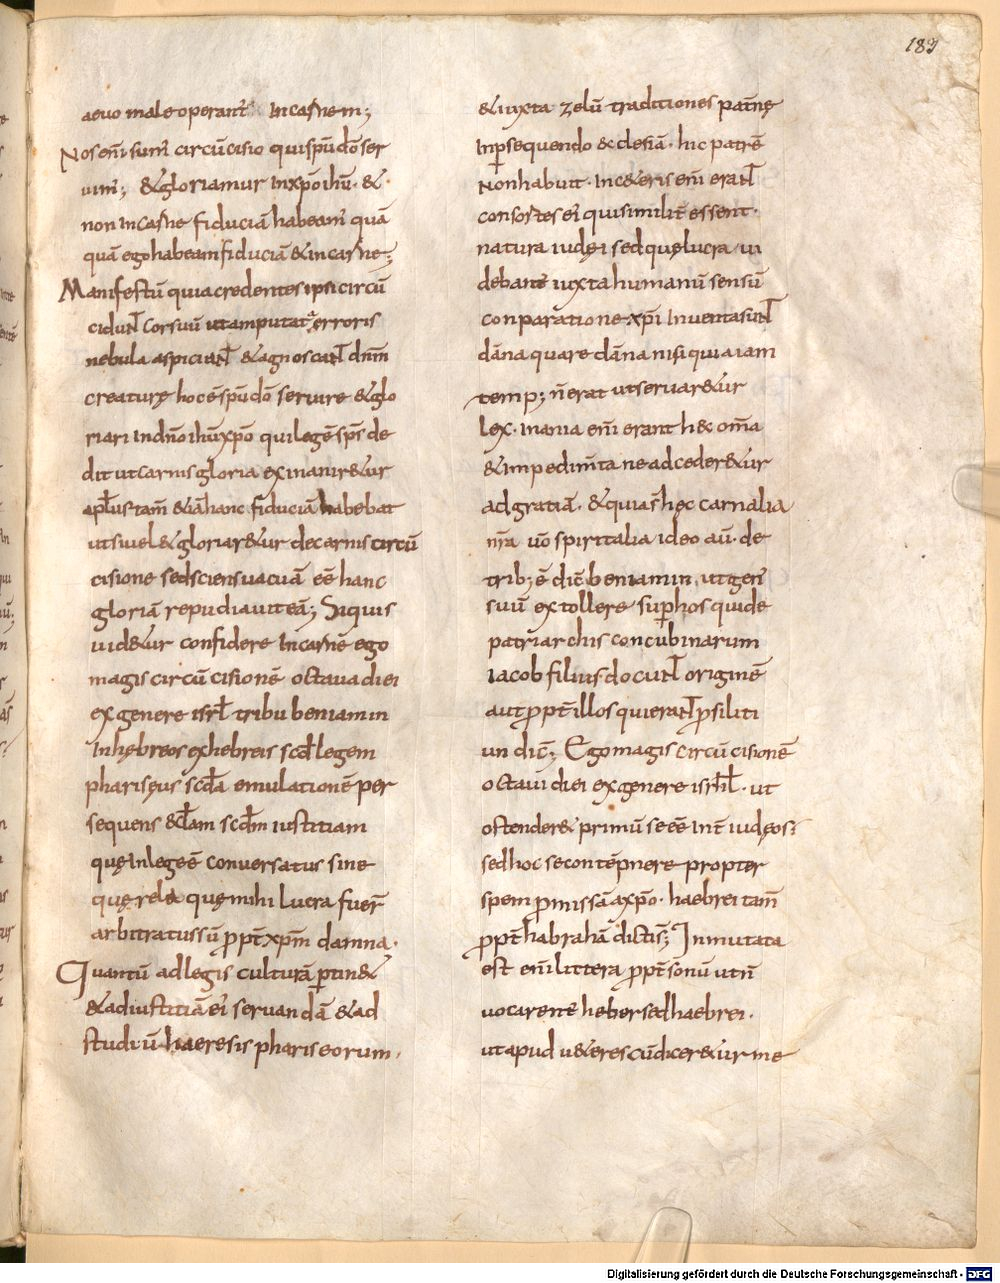 189
aeuo male operant̄ In carnem;
Nos eni᷑ sum᷑ circūcisio qui sp̄u dō ser
uim᷑; & gloriamur In xp̄o ihū · &
non In carne fiduciā habeam᷑ quā
quā ego habeam fiduciā & in carne;
Manifestū quia credentes ipsi circū
cidunt̄ cor suū ut amputata erroris
nebula aspiciant̄ & agnoscant̄ dn̄m
creaturę hoc ē sp̄u dō seruire & glo
riari In dn̄o ihū xp̄o qui legē sp̄s de
dit ut carnis gloria exinanir&ur
ap̄lus tam̄ & iā hanc fiduciā habebat
ut si uel& gloriar&ur de carnis circū
cisione sed sciens uacuā eē hanc
gloriā repudiauit eā; Siquis
uid&ur confidere In carnē ego
magis circūcisionē octaua diei
ex genere isrł tribu beniamin
In hębreos ex hebreis scd̄ legem
phariseus scd̄a emulationē per
sequens ecłam scd̄m iustitiam
quę In lege ē conuersatus sine
querela quę mihi Lucra fuer̄
arbitratus sū ꝓpt̄ xp̄m damna ·
Quantū ad legis culturā ꝑtin&
& ad iustitiā ei᷑ seruandā & ad
studiū haeresis phariseorum ·
& iuxta zelū traditiones pat̄nę
In ꝑsequendo ecclesiā · hic patrē
Non habuit · In c&eris eni᷑ erant̄
consortes ei᷑ qui simili᷑t essent ·
natura iudęi sed quę lucra ui
debant᷑ iuxta humanū sensū
conparatione xp̄i Inuenta sunt̄
dāna quare dāna nisi quia iam
temp; n̄ erat ut seruar&ur
lex · inania eni᷑ erant hęc om̄a
& impedim̄ta ne adceder&ur
ad gratiā · & quias hęc carnalia
nr̄a uō spiritalia ideo aū · de
trib; ē dic̄ beniamin, ut gen᷑
suū extollere suꝑ hos qui de
patriarchis concubinarum
iacob filius docunt̄ originē
aut ꝓpt̄ illos qui erant̄ ꝓsiliti
un dic̄; Ego magis circūcisionē
octaui diei ex genere isrhł · ut
ostender& primū se eē Int̄ iudęos
sed hoc se contēpnere propter
spem ꝓmissā a xp̄o · haebrei tam̄
ꝓpt̄ habrahā dicti s̄; Inmutata
est eni᷑ littera ꝓpt̄ sonū ut n̄
uocarent᷑ heber sed haebrei ·
ut apud u&eres cū dicer&ur me
Digitalisierung gefördert durch die Deutsche Forschungsgemeinschaft - DFG